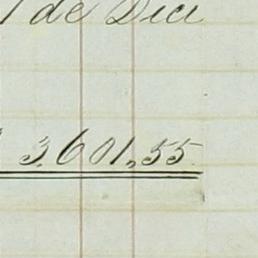 de Dici
3,601,55